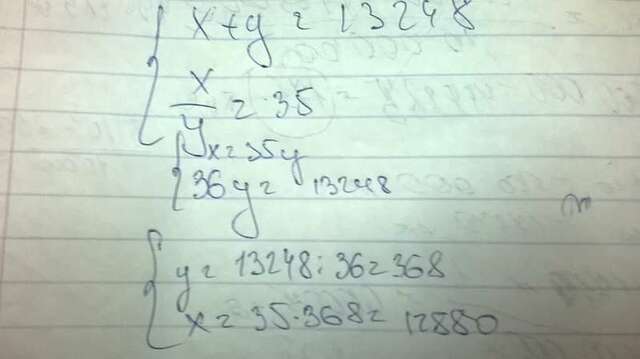 x + y = 13248
x/y = 35
x = 35y
36y = 13248
y = 13248 : 36 = 368
x = 35 · 368 = 12880